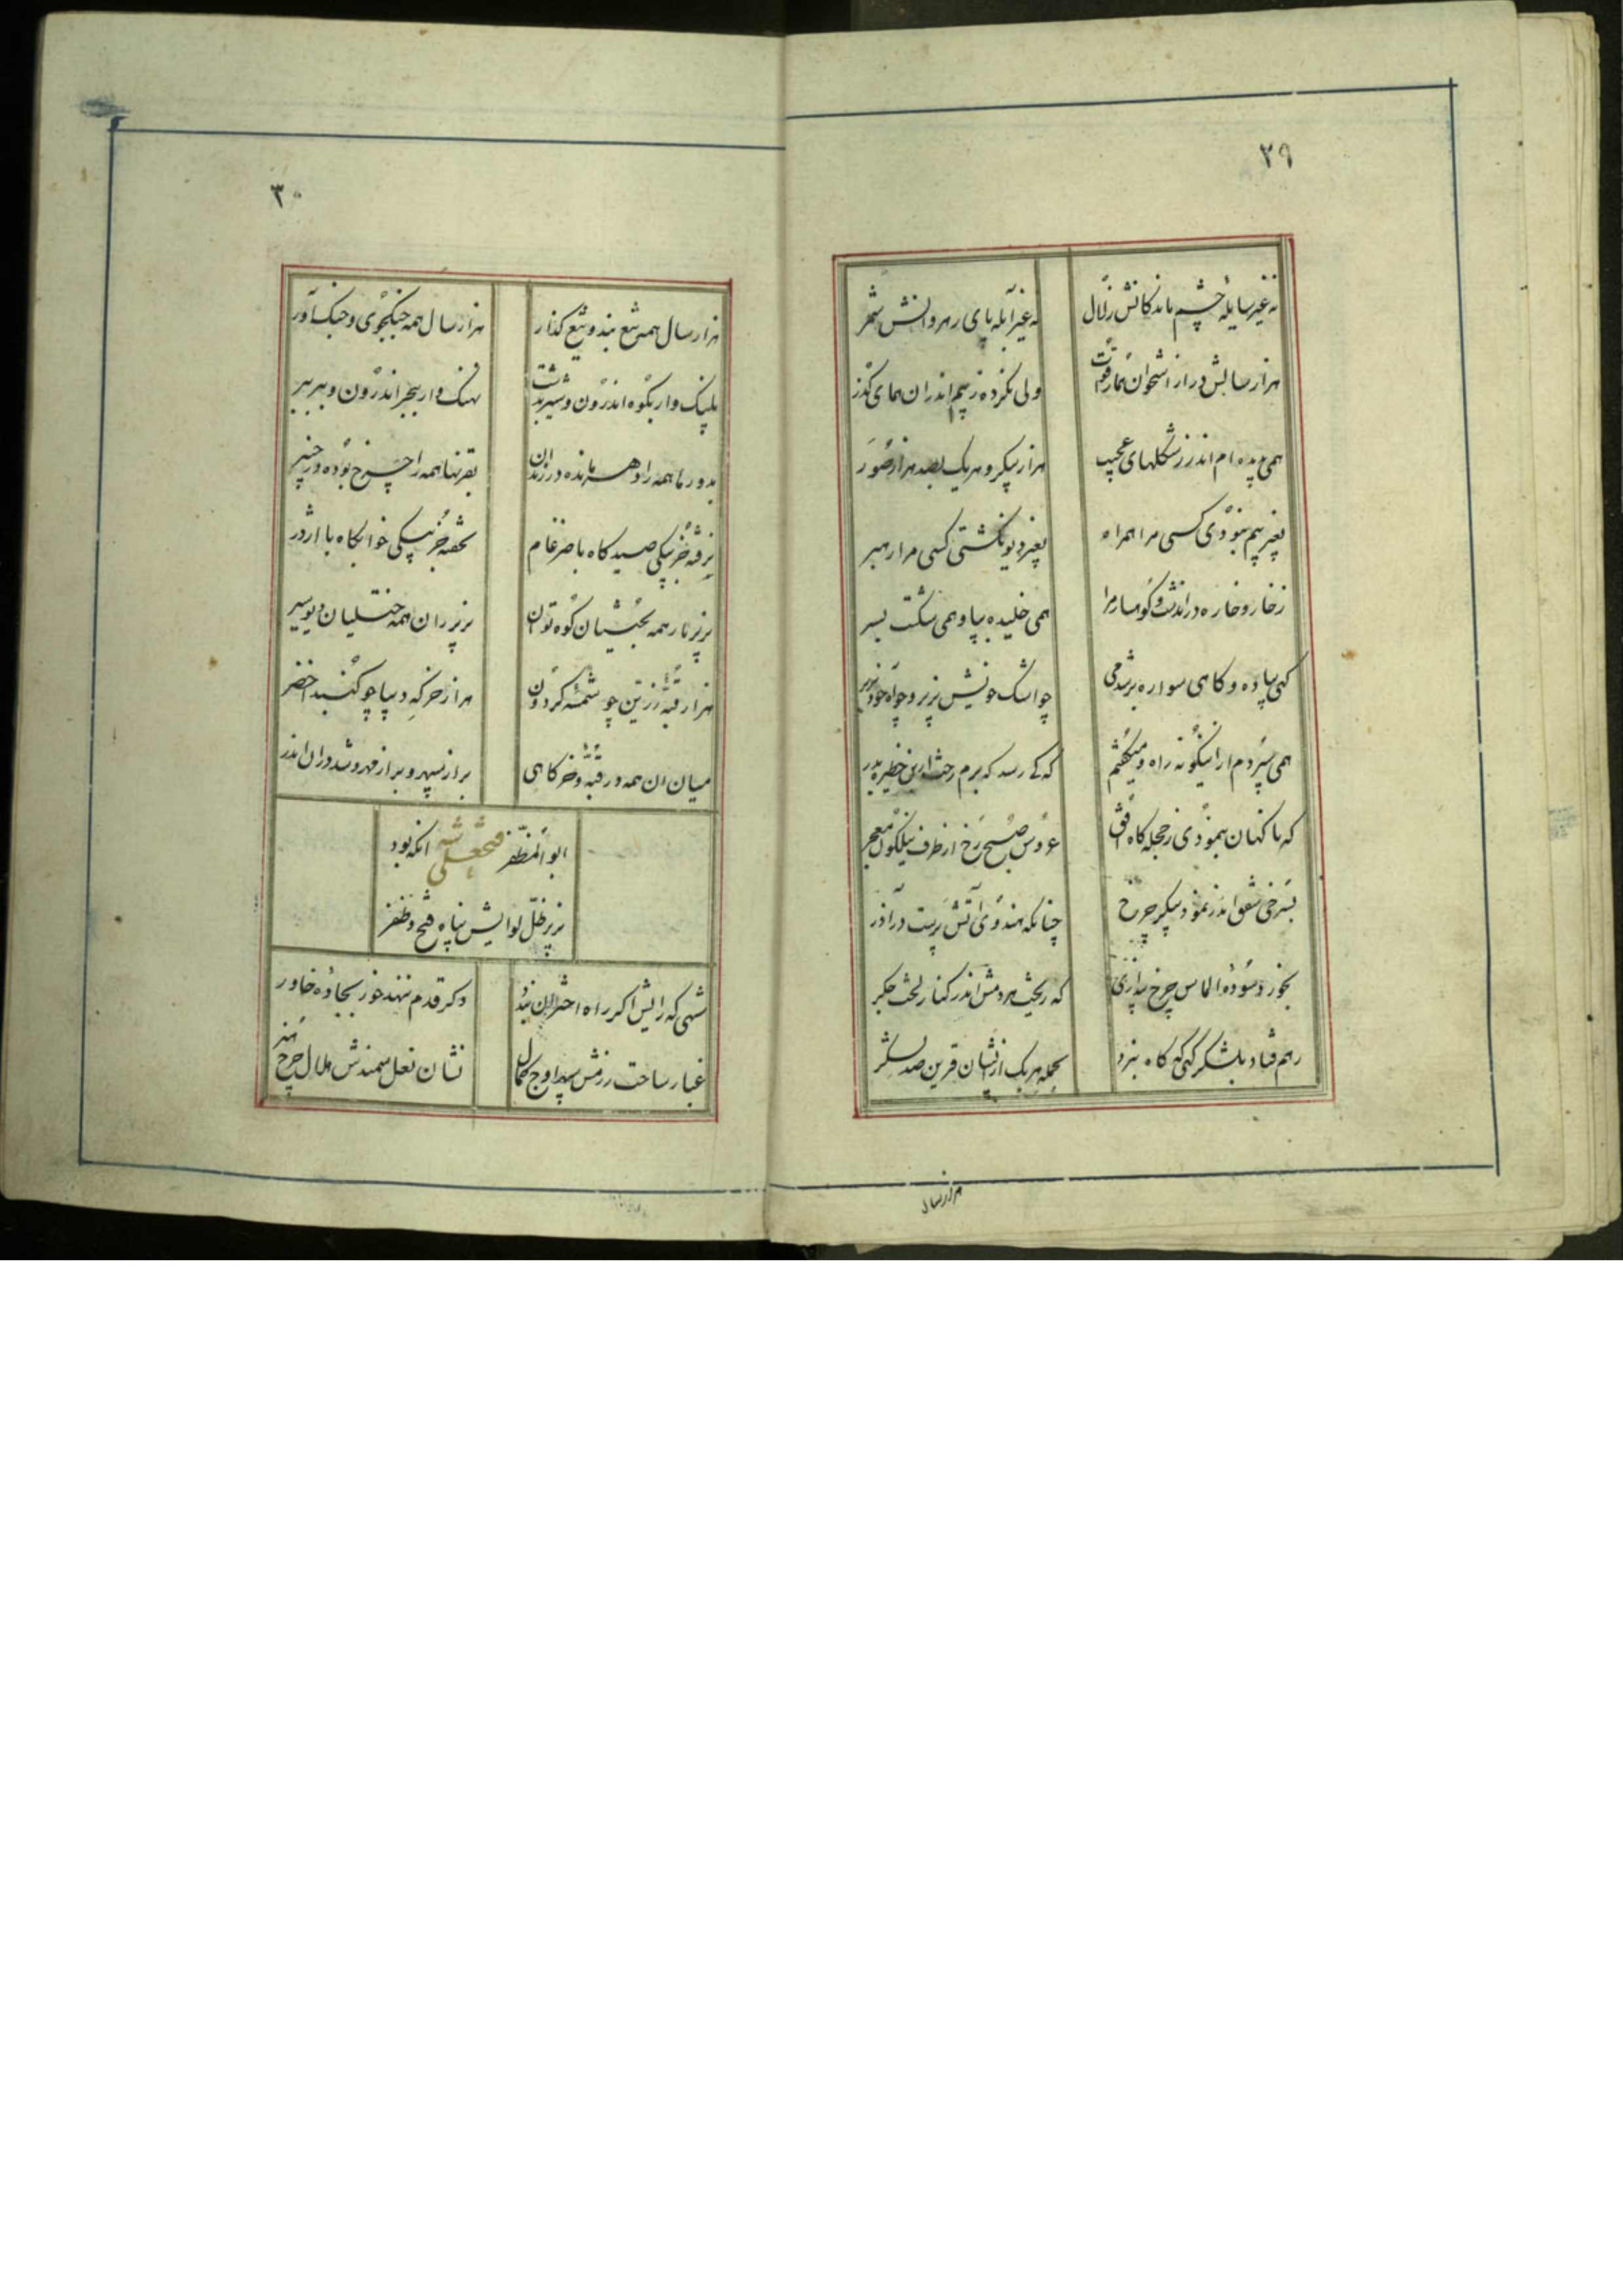 ٢٩
نه غیر سایلهٔ چشم ماندکانش زلال
نه غیر آبلهٔ پای رهروانش ثمر
هزار سالش در از استخوان همارا قوت
ولی نکرده ز بیم اندران همای گذر
همی بدیده‌ام اندر ز شکلهای عجیب
هزار پیکر و هر یک بصد هزار صُوَر
بغیر بیم نبودی کسی مرا همراه
بغیر دیو نکشتی کسی مرا رهبر
ز خار و خاره در اندشت و کوهسار مرا
همی خلیده بپا و همی شکست بسر
کهی پیاده و کاهی سواره بر شدمی
چو اشک خویش بزیر و چو آه خود بزبر
همی سپردم ازاینکونه راه و میکفتم
که کی رسد که برم رخت ازین خطیره بدر
که ناکهان بنمودی ز حجله‌کاه افق
عروس صبح رخ از طرف نیلکون معجر
بسرخی شفق اندر نمود پیکر چرخ
چنانکه هندوی آتش پرست در آذر
بخورد سودهٔ الماس چرخ پنداری
که ریخت هر دمش اندر کنار لخت جکر
رهم فتاد بلشکر کهی که کاه نبرد
بحمله هر یک ازیشان قرین صد لشکر
هزار سال
٣٠
هزار سال همه تیغ بند و تیغ گذار
هزار سال همه جنکجوی و جنک آور
پلنک وار بکوه اندرون و شیر بدشت
نهنک وار ببحر اندرون و ببر ببر
بدورها همه را دهر مانده در زندان
بقرنها همه را چرخ بوده در چنبر
نرفته جز بیکی صیدکاه با ضرغام
نخفته جز بیکی خوابکاه با اژدر
بزیر بار همه بختیان کوه توان
بزیر ران همه ختلیان دیو سیر
هزار قبهٔ زرین چو شمسهٔ کردون
هزار خرکه دیبا چو کنبد اخضر
میان ان همه در قبه و خرکاهی
براز سپهر و براز مهر و شه دران اندر
ابوالمظفر فتحعلی شه انکه بود
بزیر ظل لوایش پناه فتح و ظفر
شهی که رایش اکر راه اختران نبدد
دکر قدم ننهد خور بجادهٔ خاور
غبار ساحت رزمش سپهر اوج کمال
نشان نعل سمندش هلال چرخ هنر